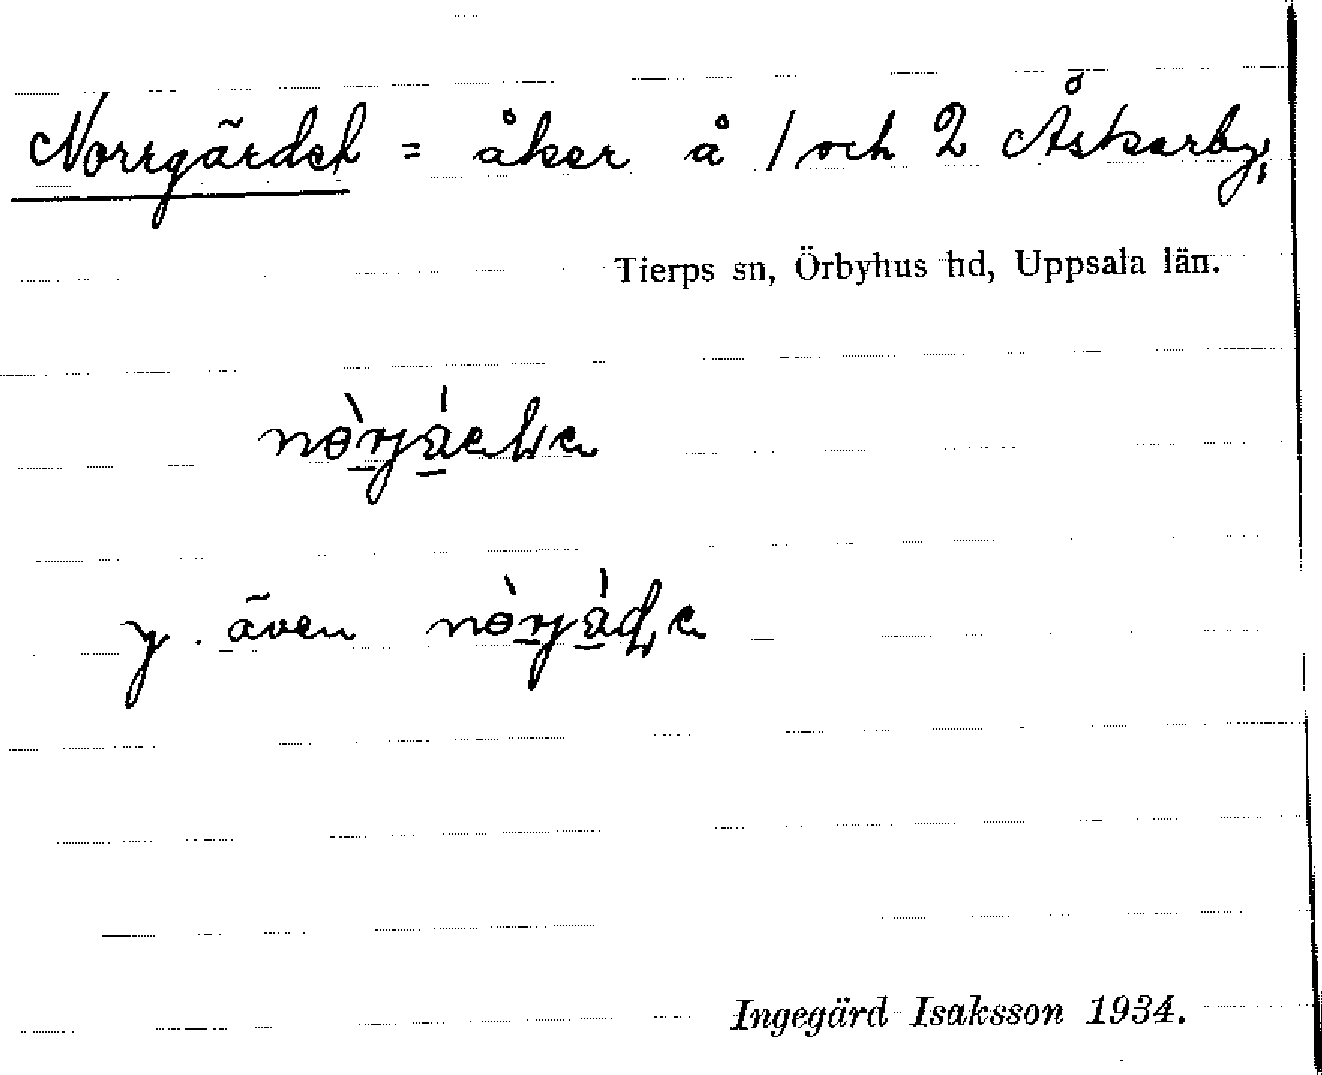 Norrgärdet = åker å 1 och 2 Åskarby;
Tierps sn, Örbyhus hd, Uppsala län.
y. även
Ingegärd Isaksson 1934.